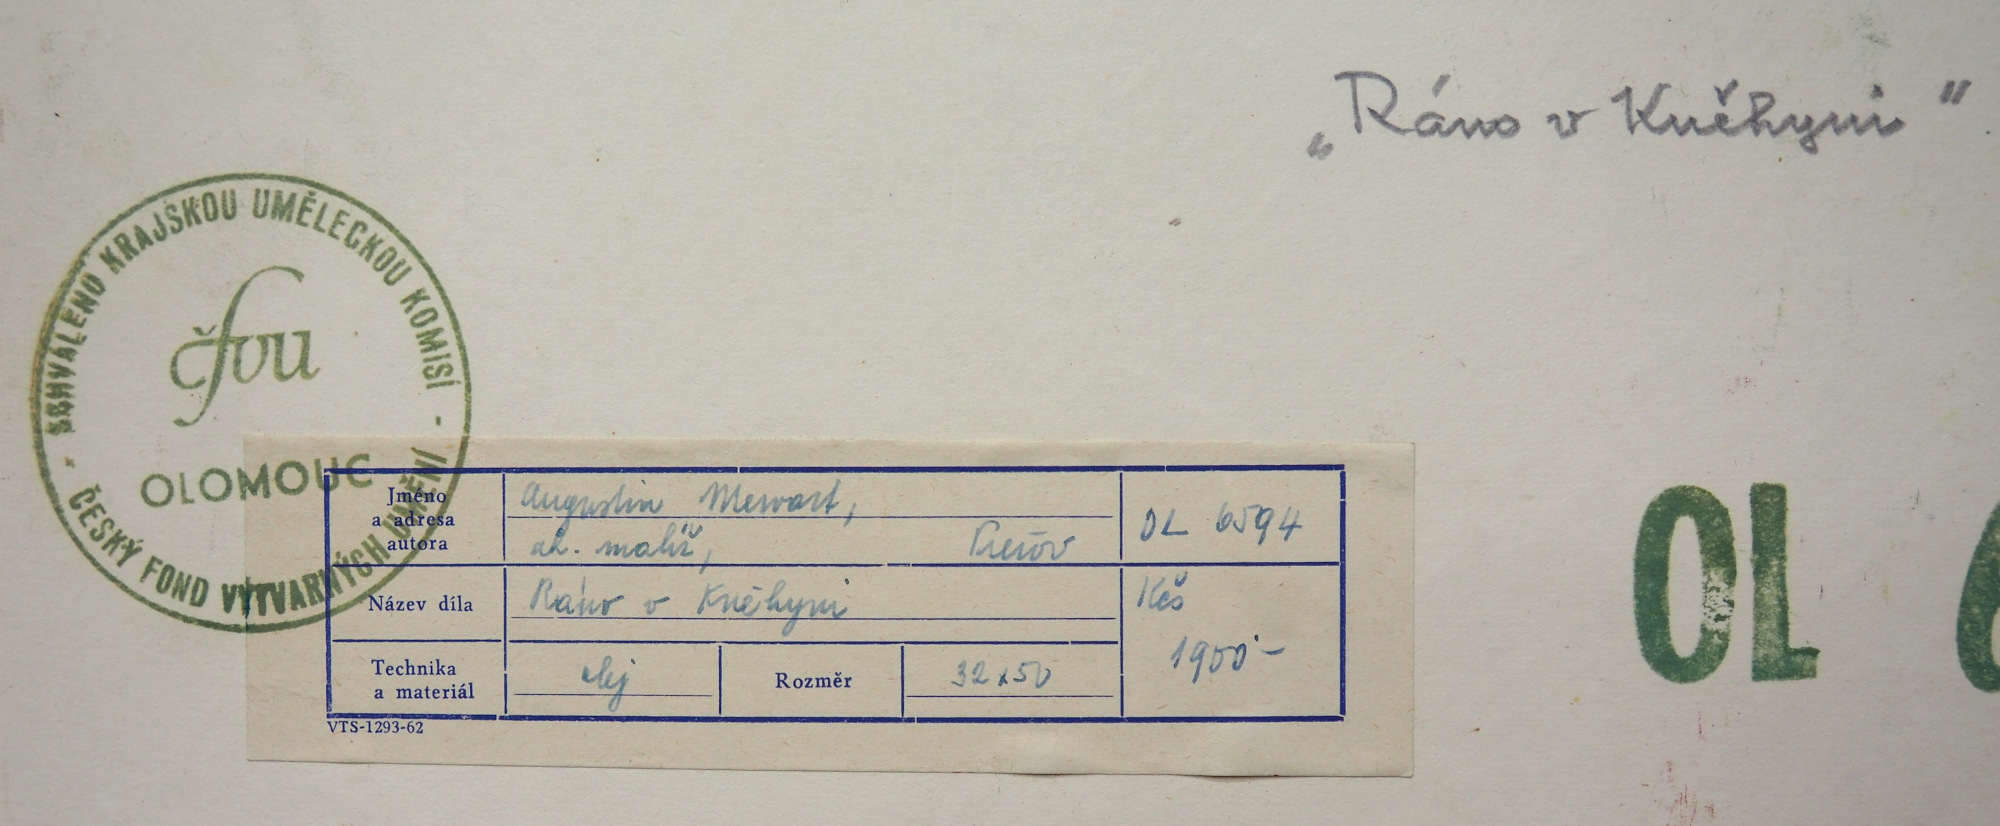 „Ráno v Kněhyni“
SCHVÁLENO KRAJSKOU UMĚLECKOU KOMISÍ
čfvu
OLOMOUC
- ČESKÝ FOND VÝTVARNÝCH UMĚNÍ -
Jméno
a adresa
autora
Augustin Mervart,
ak. malíř,
OL 6594
Název díla
Ráno v Kněhyni
Kčs
1900'-
Technika
a materiál
olej
Rozměr
32x50
VTS-1293-62
OL 6